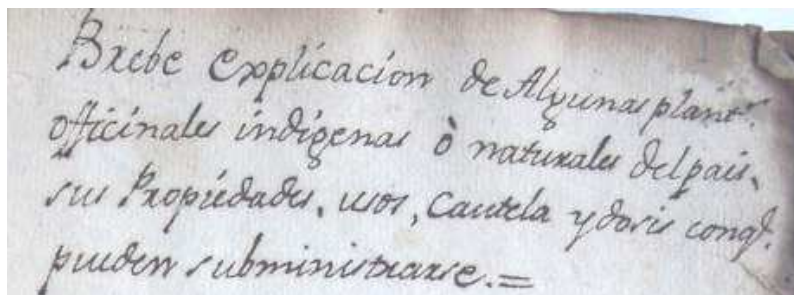 Brebe Explicacion de Algunas plant.ˢ
officinales indigenas ò naturales del pais,
sus Propiedades, usos, Cautela y dosis conq.ᵉ
pueden subministrarse.=